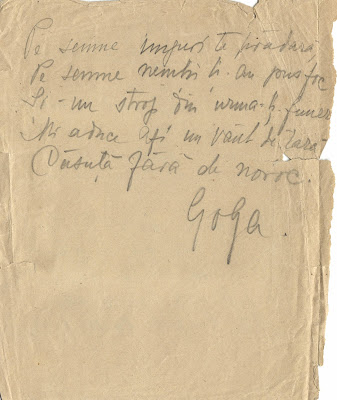 Pe semne unguri te prădară
Pe semne nemţii ţi-au pus foc
Şi-un stroj din urma-ţi funer
Mi aduce azi un vânt de vară
Căsuţă fără de noroc.
Goga